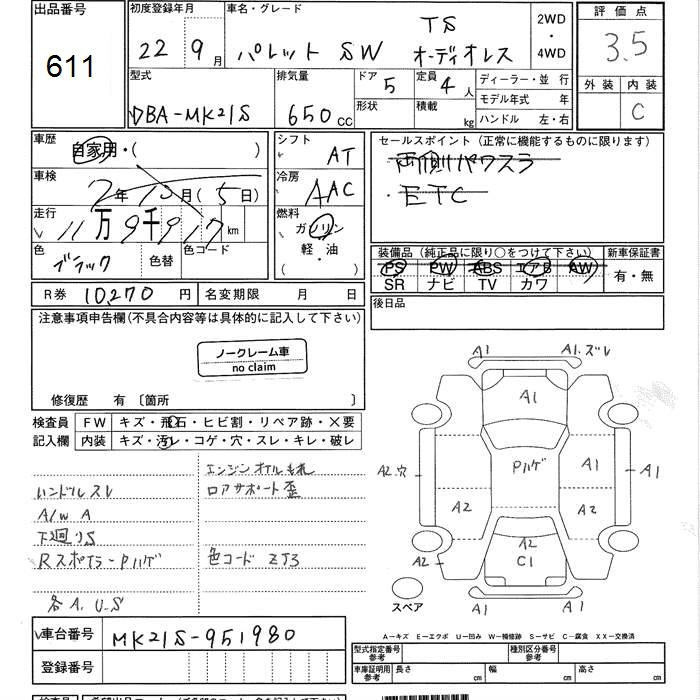 出品番号
611
初度登録年月
22年9月
車名・グレード
パレット SW TS オーディオレス
2WD
・
4WD
評価点
3.5
外装 内装
C
型式
DBA-MK21S
排気量
650 cc
ドア 5
形状
定員 4 人
積載 kg
ディーラー・並行
モデル年式 年
ハンドル 左・右
車歴
自家用・( )
車検
2年10月(5日)
走行
11万9千917km
色
ブラック
色替
色コード
シフト
AT
冷房
AAC
燃料
ガソリン
軽・油
( )
セールスポイント(正常に機能するものに限ります)
両側パワスラ
・ETC
装備品(純正品に限り○をつけて下さい)
PS PW ABS エアB AW
SR ナビ TV カワ
新車保証書
有・無
R券 10,270 円
名変期限 月 日
後日品
注意事項申告欄(不具合内容等は具体的に記入して下さい)
ノークレーム車
no claim
修復歴 有〔箇所 〕
検査員
記入欄
FW キズ・飛石・ヒビ割・リペア跡・×要
内装 キズ・汚レ・コゲ・穴・スレ・キレ・破レ
エンジンオイルもれ
ハンドルスレ
ロアサポート歪
A/W A
下廻りS
Rスポイラ-Pハゲ
色コード ZJ3
各A.U.S
A1
A1.ズレ
A1
Pハゲ
A1
A1
A2.穴
A2
A2
A2
A2
C1
スペア
A-キズ E-エクボ U-凹み W-補修跡 S-サビ C-腐食 XX-交換済
車台番号
MK21S-951980
登録番号
型式指定番号
参考
種別区分番号
参考
車庫証明用
参考
長さ cm
幅 cm
高さ cm